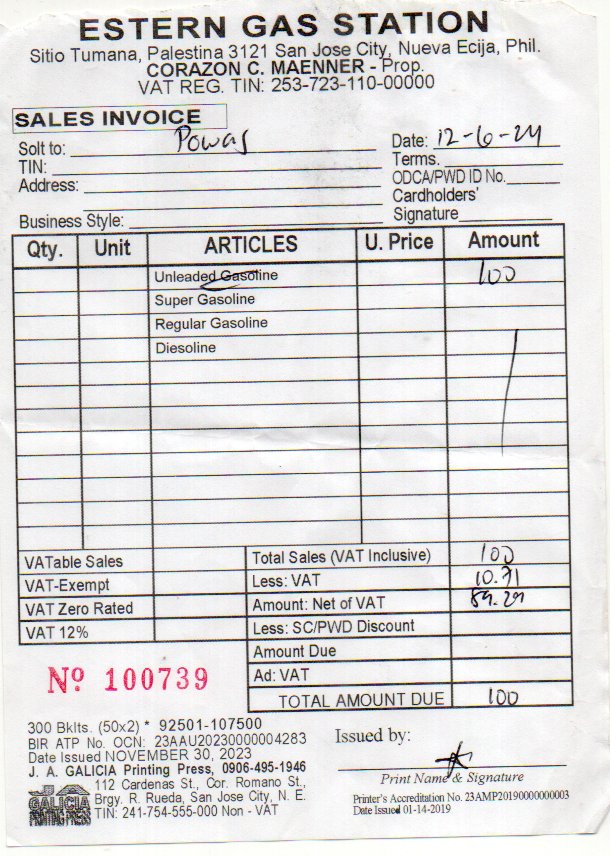 ESTERN GAS STATION
Sitio Tumana, Palestina 3121 San Jose City, Nueva Ecija, Phil.
CORAZON C. MAENNER - Prop.
VAT REG. TIN: 253-723-110-00000
SALES INVOICE
Solt to: Powas Date: 12-6-24
TIN: Terms.
Address: ODCA/PWD ID No.
Cardholders'
Business Style: Signature
Qty. Unit ARTICLES U. Price Amount
Unleaded Gasoline 100
Super Gasoline
Regular Gasoline
Diesoline
VATable Sales Total Sales (VAT Inclusive) 100
VAT-Exempt Less: VAT 10.71
VAT Zero Rated Amount: Net of VAT 89.29
VAT 12% Less: SC/PWD Discount
Amount Due
Ad: VAT
Nº 100739
TOTAL AMOUNT DUE 100
300 Bklts. (50x2) * 92501-107500
BIR ATP No. OCN: 23AAU20230000004283
Date Issued NOVEMBER 30, 2023
J. A. GALICIA Printing Press, 0906-495-1946
112 Cardenas St., Cor. Romano St.,
Brgy. R. Rueda, San Jose City, N. E.
TIN: 241-754-555-000 Non - VAT
JA
GALICIA
PRINTING PRESS
Issued by:
Print Name & Signature
Printer's Accreditation No. 23AMP20190000000003
Date Issued 01-14-2019